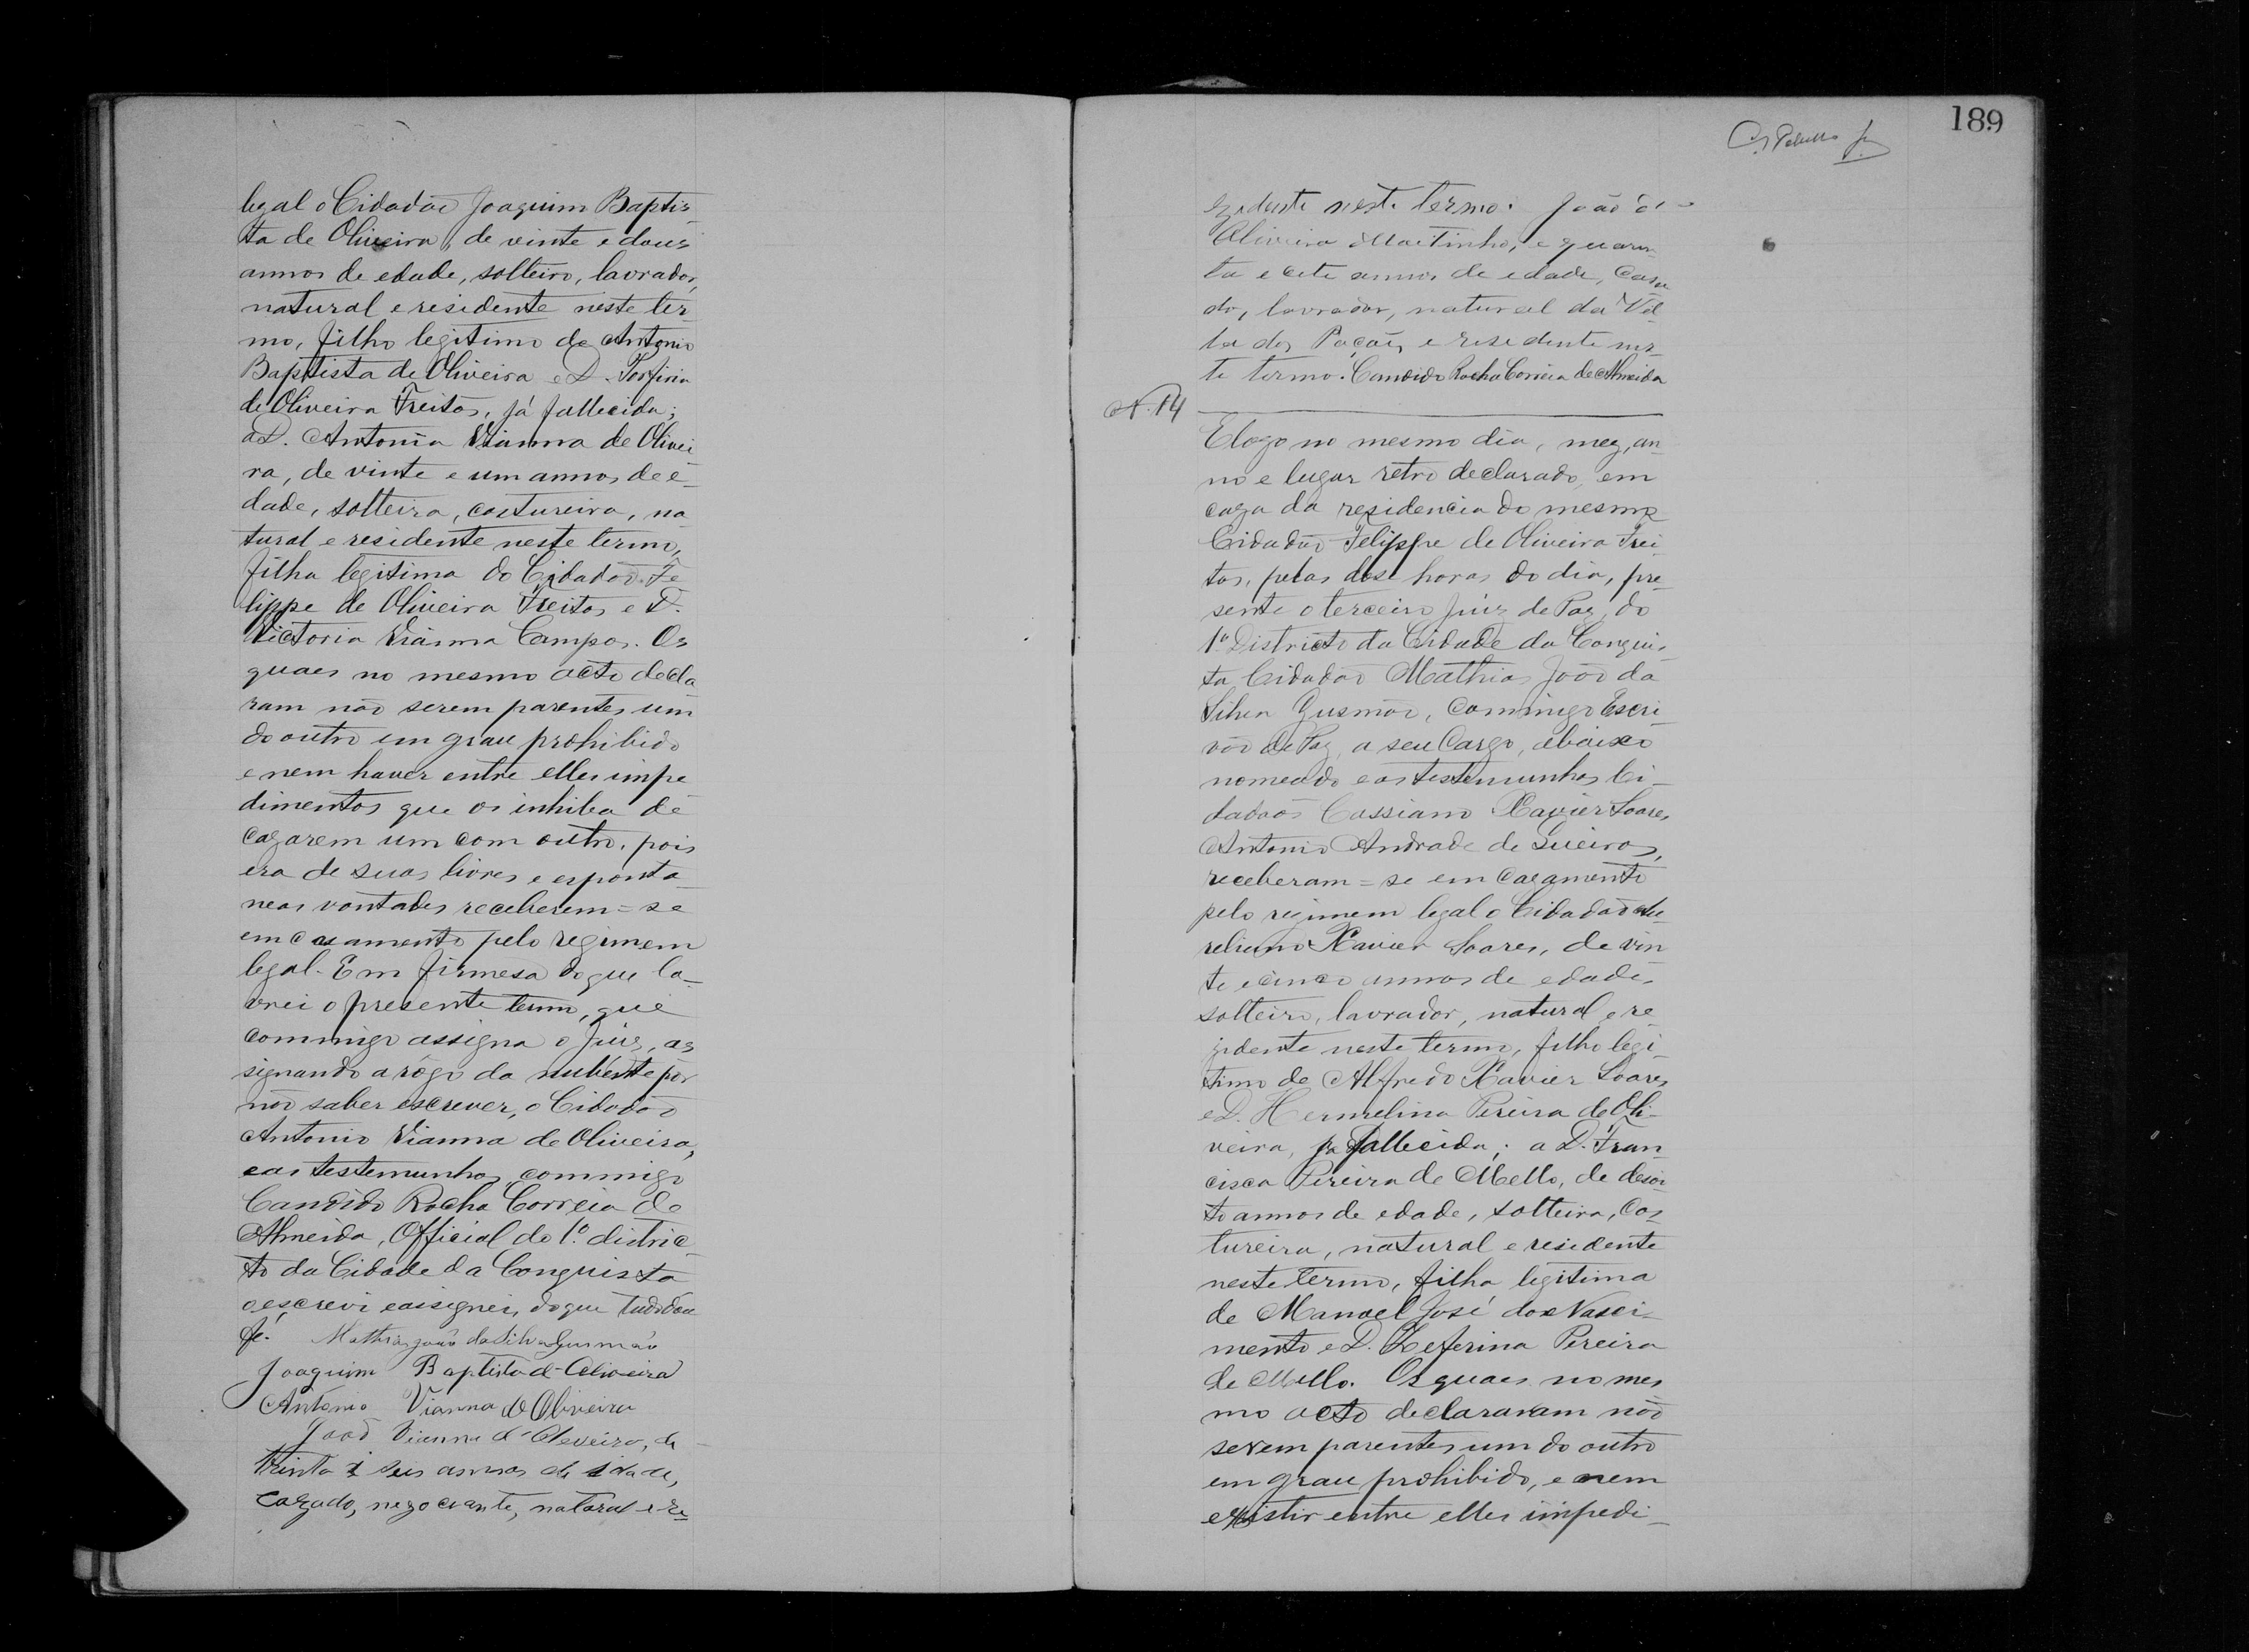 legal o Cidadão Joaquim Baptis-
ta de Oliveira, de vinte e dous
annos de edade, solteiro, lavrador,
natural e residente neste ter-
mo, filho legitimo de Antonio
Baptista de Oliveira e D. Porfiria
de Oliveira Freitas, já fallecida;
a D. Antonia Vianna de Olivei
ra, de vinte e um annos de e-
dade, solteira, costureira, na
tural e residente neste termo,
filha legitima do Cidadão Fe
lippe de Oliveira Freitas e D.
Victoria Vianna Campos. Os
quaes no mesmo acto decla
ram não serem parentes um
do outro em grau prohibido
e nem haver entre elles impe
dimentos que os inhiba de
cazarem um com outro, pois
era de suas livres e esponta-
neas vontades receberem=se
em casamento pelo regimem
legal. Em firmesa do que la-
vrei o presente termo, que
commigo assigna o Juiz, as
signando a rôgo da nubente por
não saber escrever, o Cidadão
Antonio Vianna de Oliveira,
e as testemunhas commigo
Candido Rocha Correia de
Almeida, Official do 1º distric-
to da Cidade da Conquista
o escrevi e assignei, do que tudo dou
fé. Mathias João da Silva Gusmão
Joaquim Baptista d'Oliveira
Antonio Vianna de Oliveira
João Vianna d'Oleveira, de
trinta i seis annos de idade,
cazado, negociante, natural e re=
189
zedente neste termo. João d'
Oliveira Martinho, e quaren
ta e cete annos de edade, casa
do, lavrador, natural da Vil
la dos Poções e residente nes-
te termo. Candido Rocha Correia de Almeida
N. 14
E logo no mesmo dia, mez, an-
no e lugar retro declarado, em
caza da rezidencia do mesmo
Cidadão Felippe de Oliveira Frei-
tas, pelas dose horas do dia, pre-
sente o terceiro Juiz de Paz, do
1º Districto da Cidade da Conquis-
ta Cidadão Mathias João da
Silva Gusmão, commigo Escri-
vão de Paz, a seu Cargo, abaixo
nomeado e as testemunhas Ci-
dadãos Cassiano Xavier Soares,
Antonio Andrade de
receberam=se em cazamento
pelo regimem legal o Cidadão Au-
reliano Xavier Soares, de vin
te e cinco annos de edade,
solteiro, lavrador, natural e re
zidente neste termo, filho legi-
timo de Alfredo Xavier Soares
e D. Hermelina Pereira de Oli-
veira, já fallecida; a D. Fran-
cisca Pereira de Mello, de desoi-
to annos de edade, solteira, cos-
tureira, natural e residente
neste termo, filha legitima
de Manoel José do Nasci-
mento e D. Zeferina Pereira
de Mello. Os quaes no mes
mo acto declararam não
serem parentes um do outro
em grau prohibido, e nem
existir entre elles impedi-